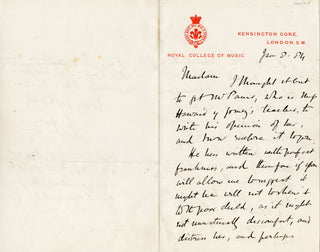 KENSINGTON GORE,
LONDON, S.W.
ROYAL COLLEGE OF MUSIC
Jan 8. 84
Madam I thought it best
to get Mr Pauer, who is Miss
Howard of teacher, to
write his opinion of her,
and now enclose it to you
He has written with perfect
frankness, and therefore if you
will allow me to suggest it
might be well not to show it
to the poor child, as it might
not unnaturally discomfort, and
distress her, and perhaps